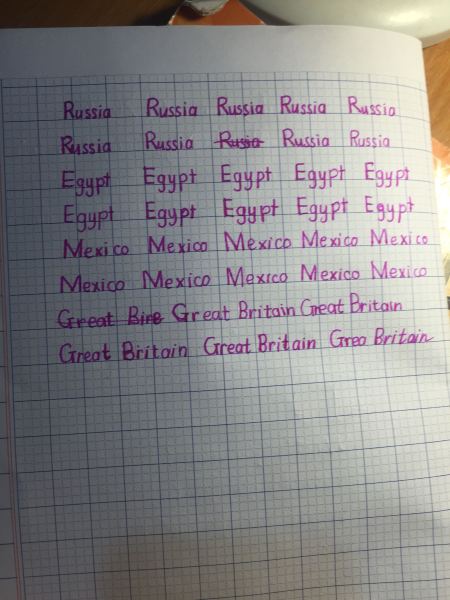 Russia Russia Russia Russia Russia
Russia Russia Russia Russia Russia
Egypt Egypt Egypt Egypt Egypt
Egypt Egypt Egypt Egypt Egypt
Mexico Mexico Mexico Mexico Mexico
Mexico Mexico Mexico Mexico Mexico
Great Bire Great Britain Great Britain
Great Britain Great Britain Grea Britain